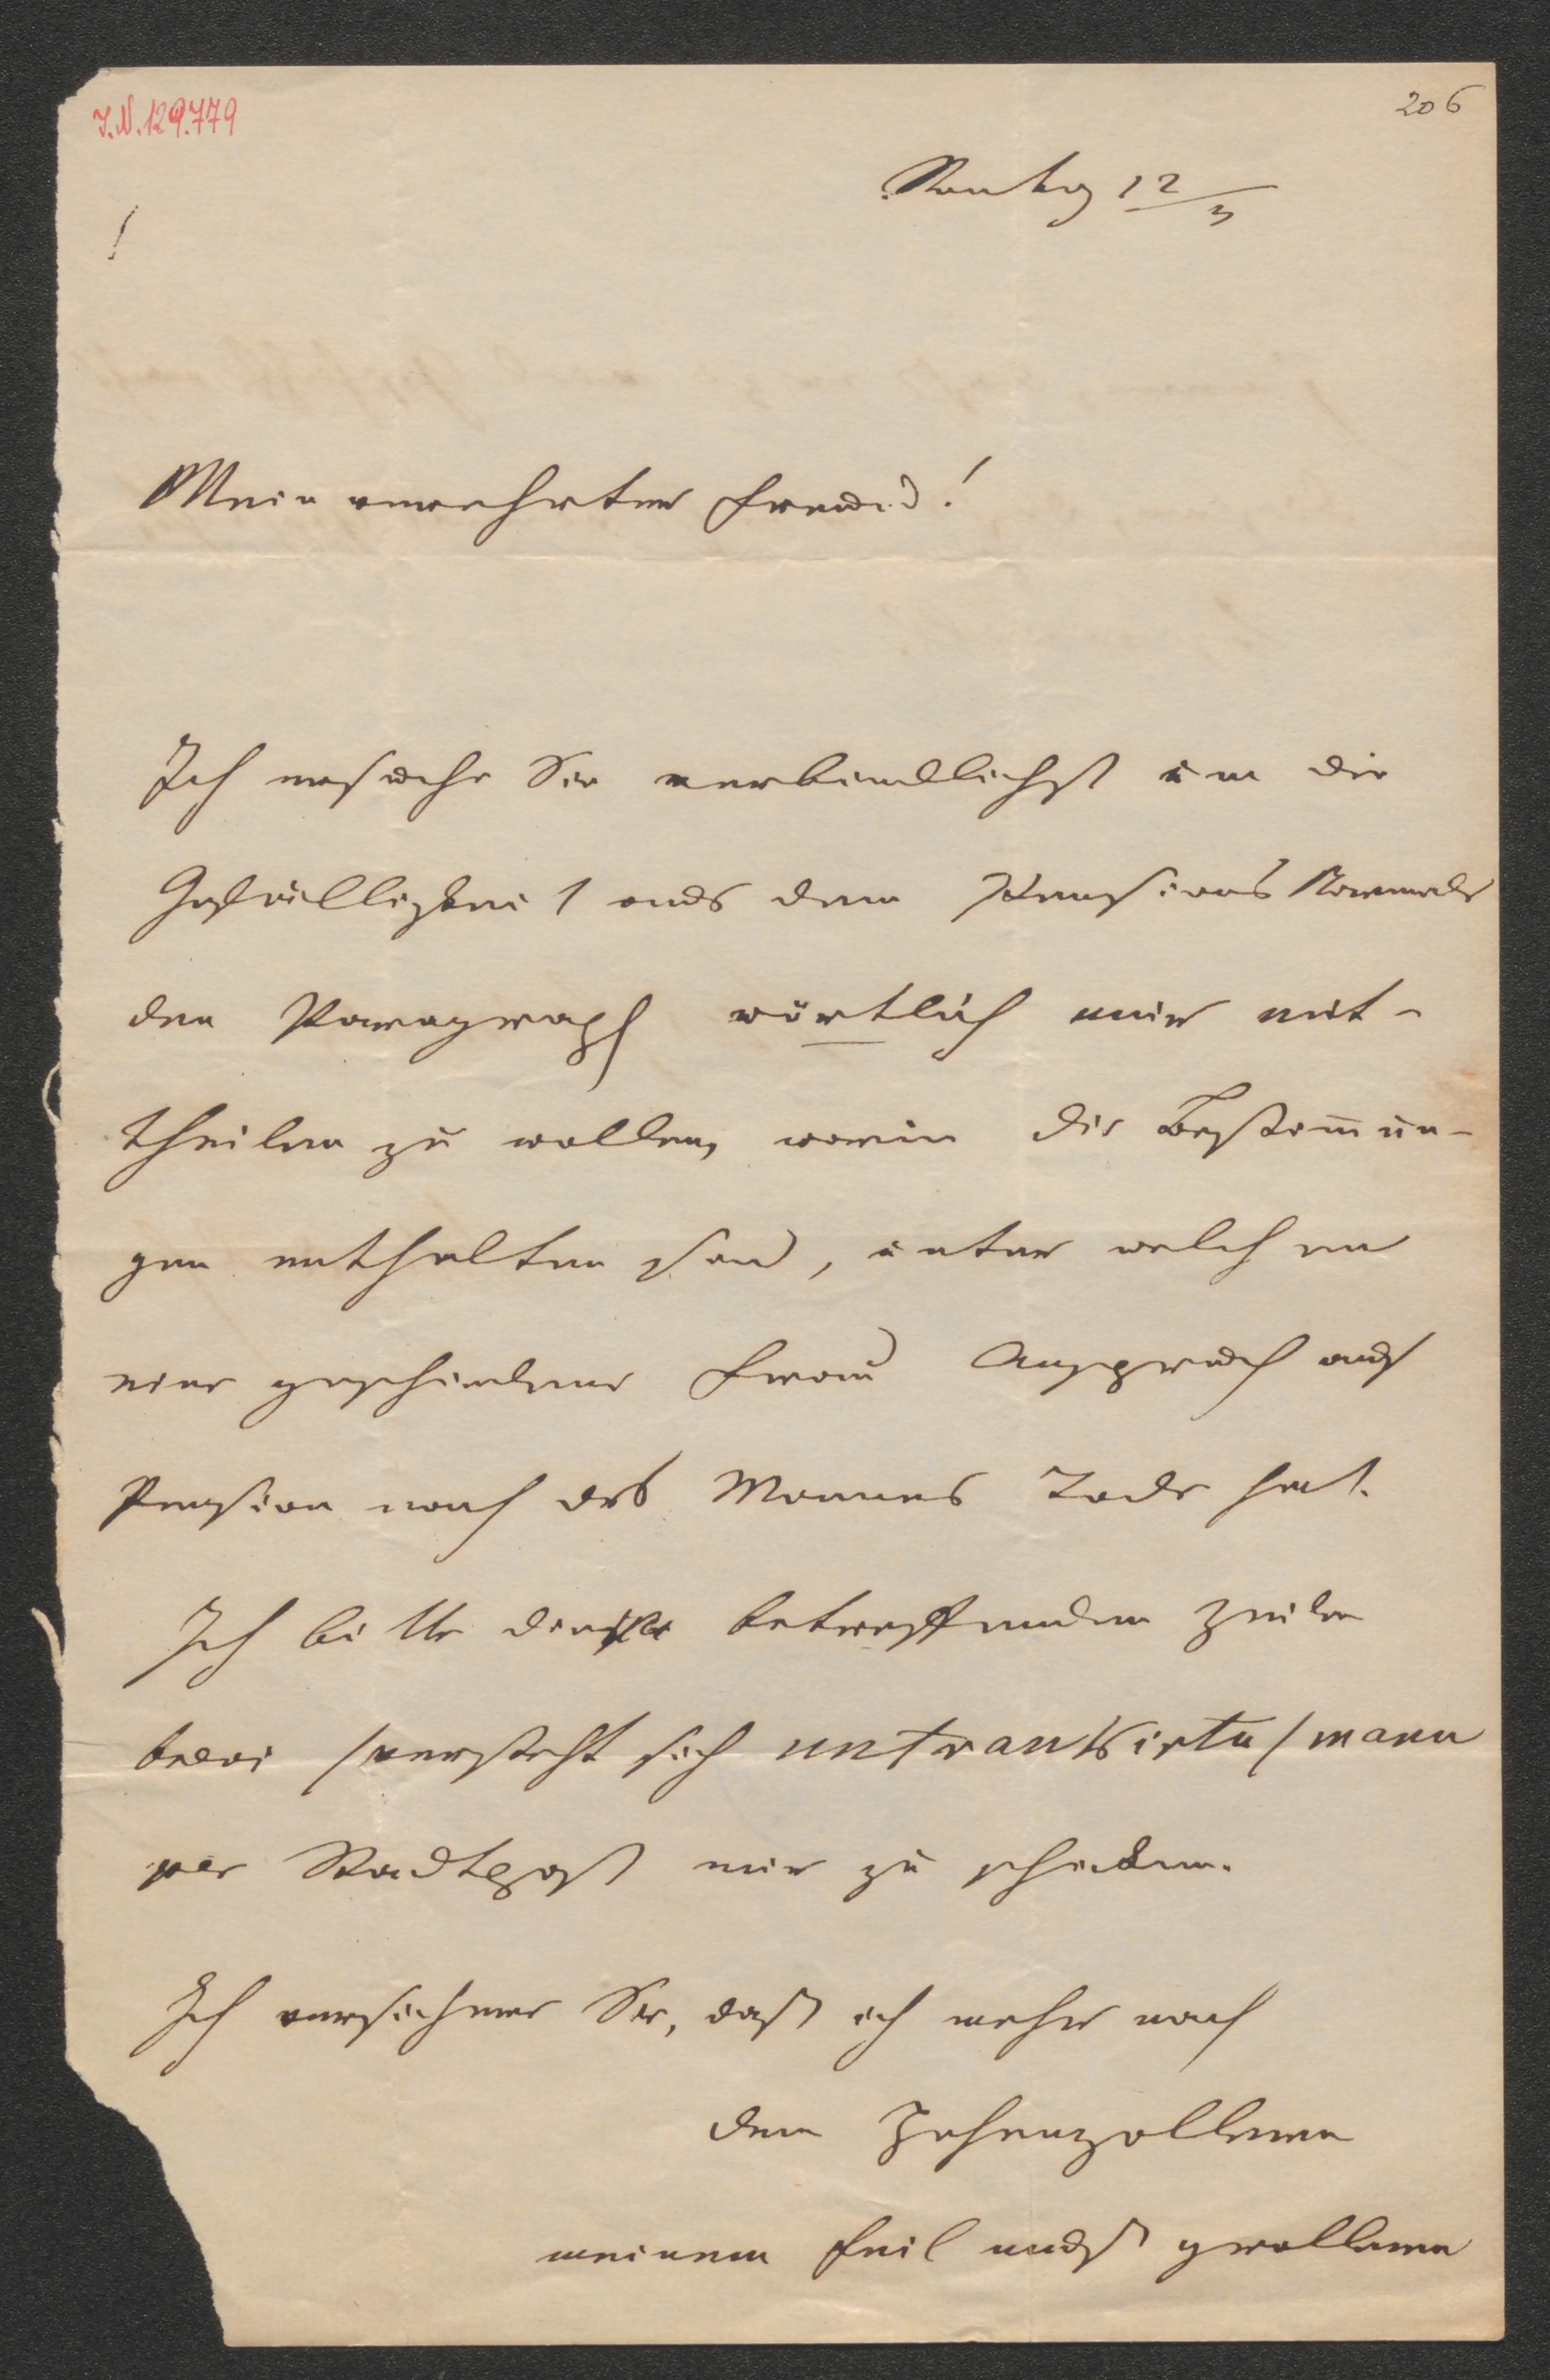 I.N. 129.779
206
Sontag 12/3
Mein verehrter Freund!
Ich ersuche Sie verbindlichst um die
Gefälligkeit aus dem Pensions Normale
den Paragraph wörtlich mir mit-
theilen zu wollen, worin die Bestim̄un-
gen enthalten sind, unter welchen
eine geschiedene Frau Anspruch auf
Pension nach des Mannes Tode hat.
Ich bitte diese betreffenden Zeilen
/versteht sich unfrankirte/
per Stadtpost mir zu schicken.
Ich versichere Sie, daß ich mehr nach
dem Hohenzollern
meinem Feil nachst grollern